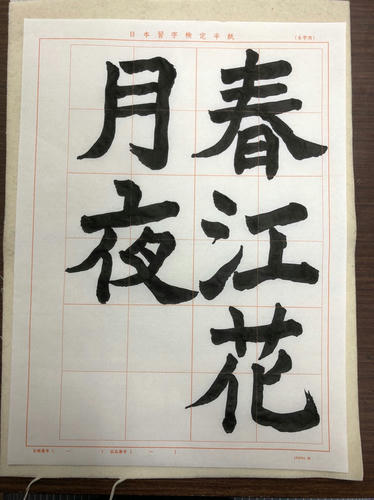 日本習字検定半紙
(6字用)
春江花
月夜